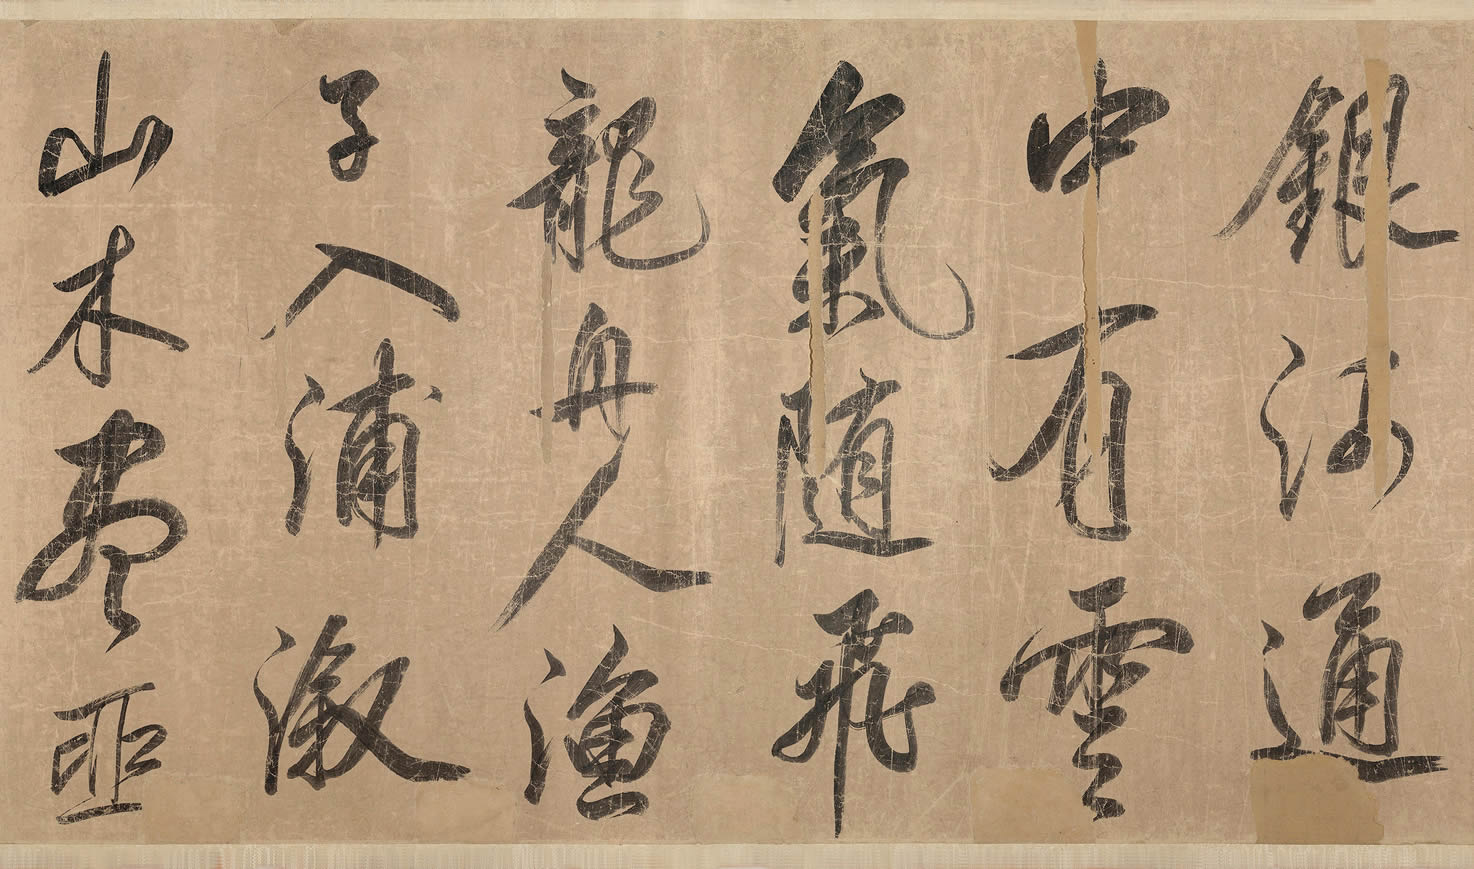 銀河通
中有雲
氣隨飛
龍舟人漁
子入浦漵
山木盡亞